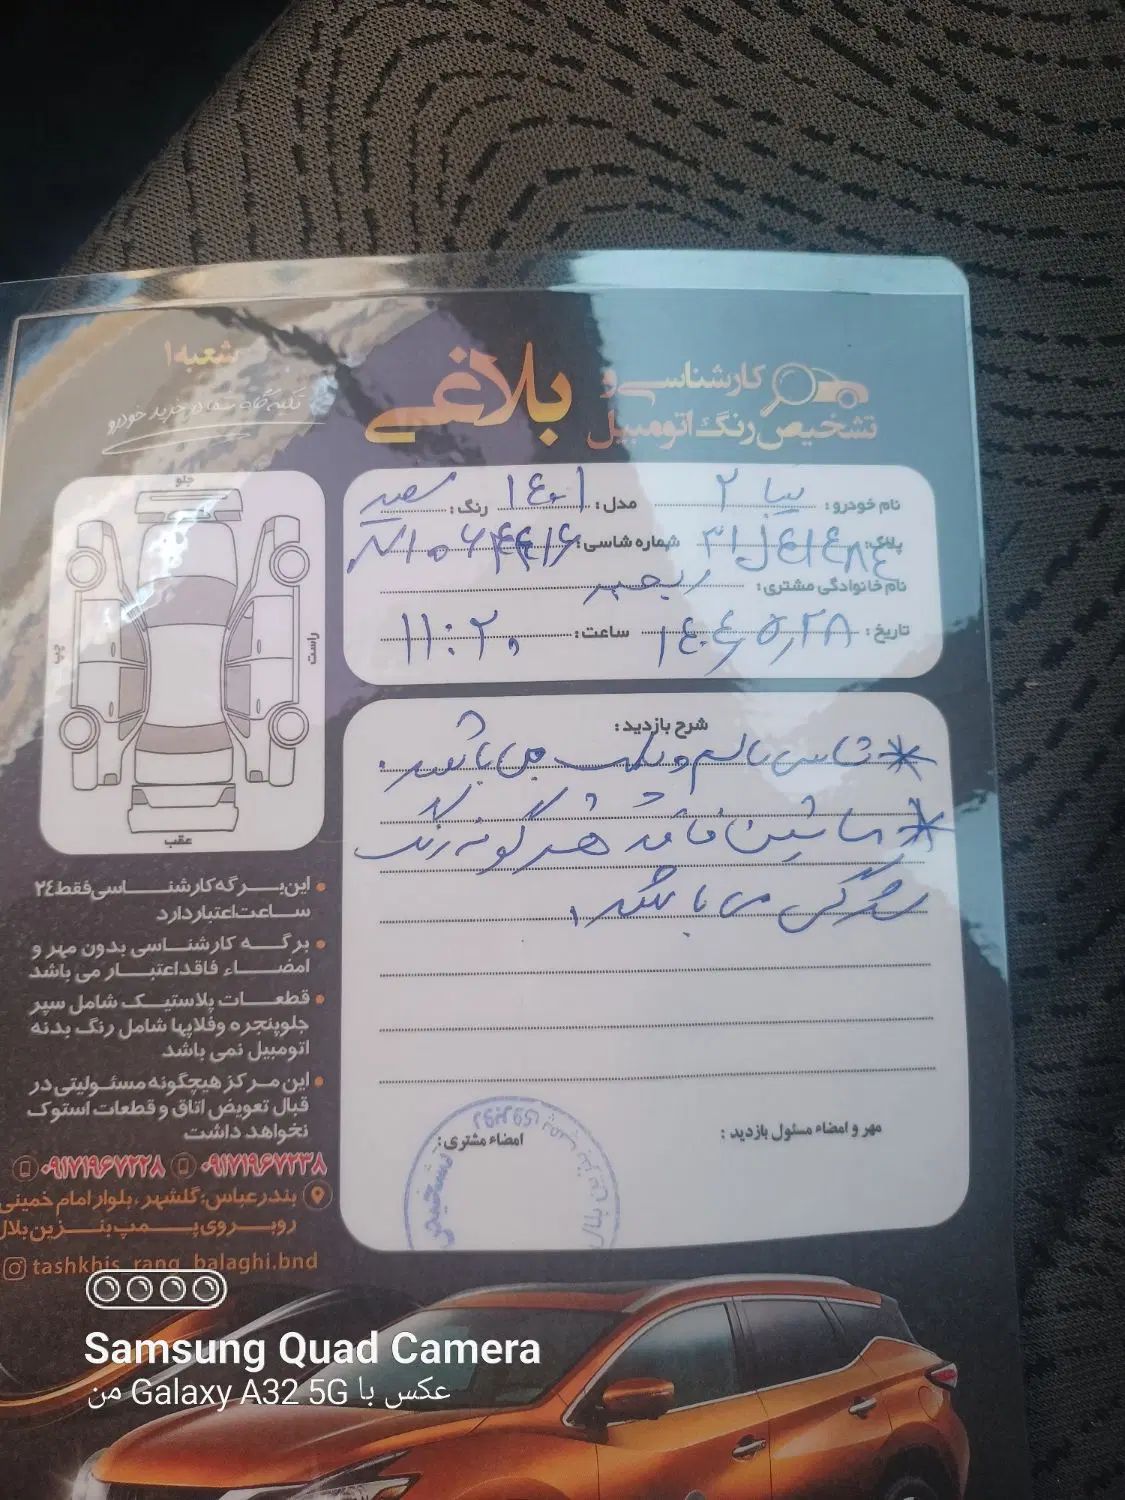 شعبه ۱
کارشناسی و
تشخیص رنگ اتومبیل
بلاغی
تکیه گاه شما در خرید خودرو
نام خودرو: سیبا ۲
مدل: ۱۴۰۱
رنگ: سفید
پلاک:
شماره شاسی:
نام خانوادگی مشتری:
تاریخ: ۱۴۰۴/۵/۲۸
ساعت: ۱۱:۲۰
شرح بازدید:
* شاسی سالم و پلمپ می باشد.
* ماشین فاقد هر گونه رنگ
می باشد.
مهر و امضاء مسئول بازدید:
امضاء مشتری:
جلو
راست
چپ
عقب
• این برگه کارشناسی فقط ۲٤
ساعت اعتبار دارد
• برگه کارشناسی بدون مهر و
امضاء فاقد اعتبار می باشد
• قطعات پلاستیک شامل سپر
جلوپنجره وفلاپها شامل رنگ بدنه
اتومبیل نمی باشد
• این مرکز هیچگونه مسئولیتی در
قبال تعویض اتاق و قطعات استوک
نخواهد داشت
۰۹۱۷۱۹۶۷۲۳۸ ۰۹۱۷۱۹۶۷۲۲۸
بندرعباس: گلشهر، بلوار امام خمینی
روبروی پمپ بنزین بلال
tashkhis_rang_balaghi.bnd
Samsung Quad Camera
عکس با Galaxy A32 5G من